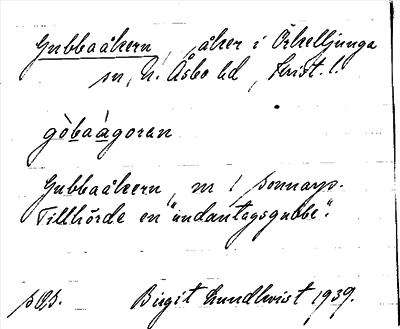 Gubbaåkern, åker i Örkelljunga
sn, N. Åsbo hd, Krist. l.
gòbaàgoran
Gubbaåkern, m
Tillhörde en "undantagsgubbe".
Birgit Lundkvist 1939.